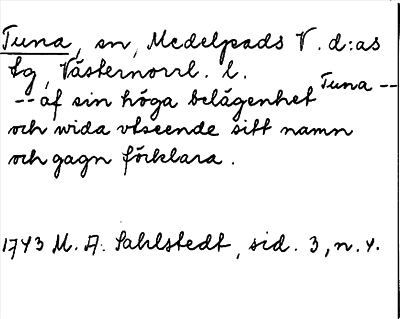 Tuna, sn, Medelpads V. d:as
tg, Västernorrl. l.
Tuna --
-- af sin höga belägenhet
och wida utseende sitt namn
och gagn förklara.
1743 M. A. Sahlstedt, sid. 3, n. 4.